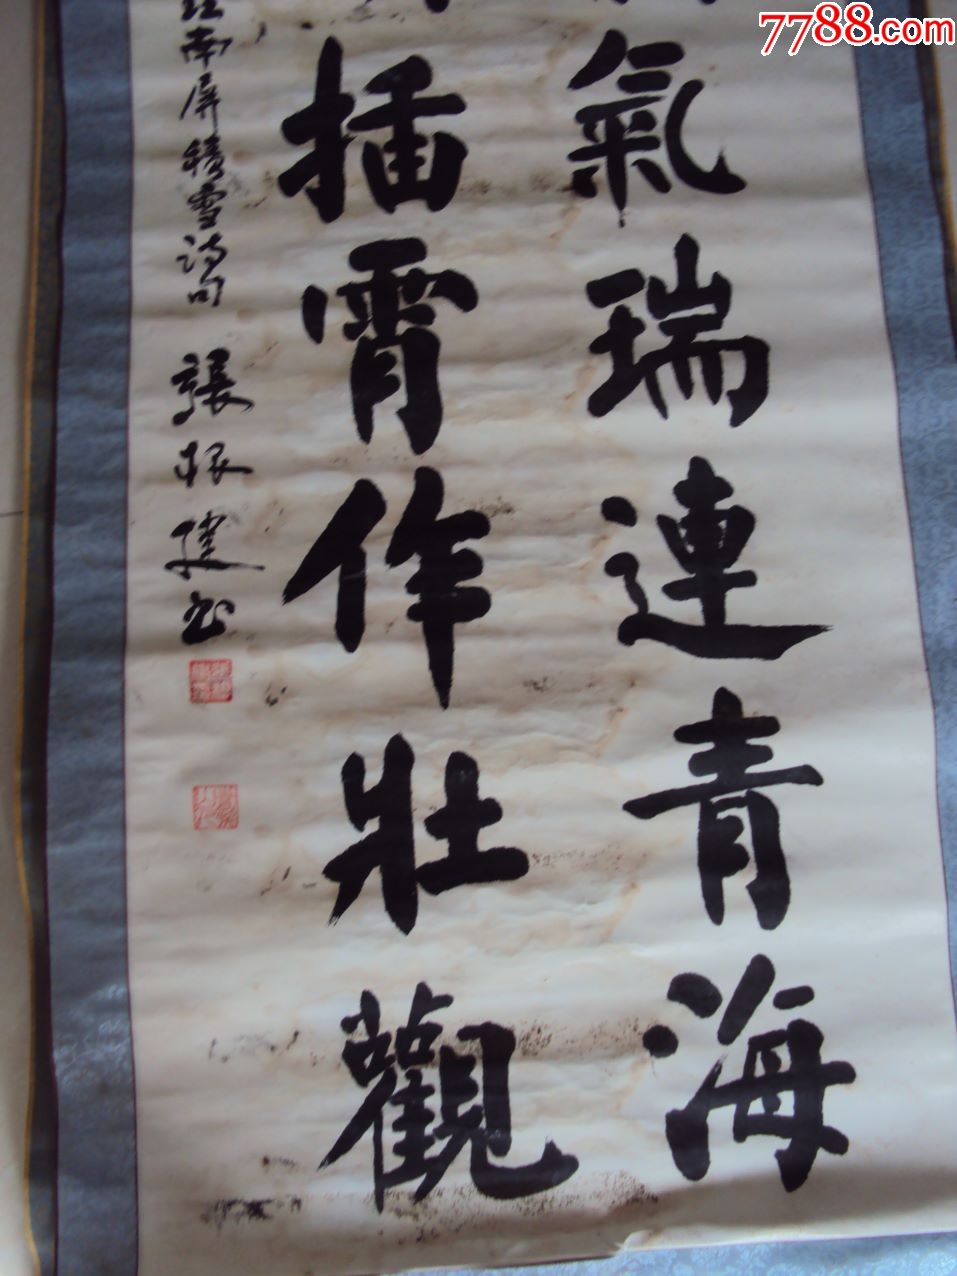 7788.com
氣瑞連青海
插霄作壯觀
江南屏積雪詩句 張根建书